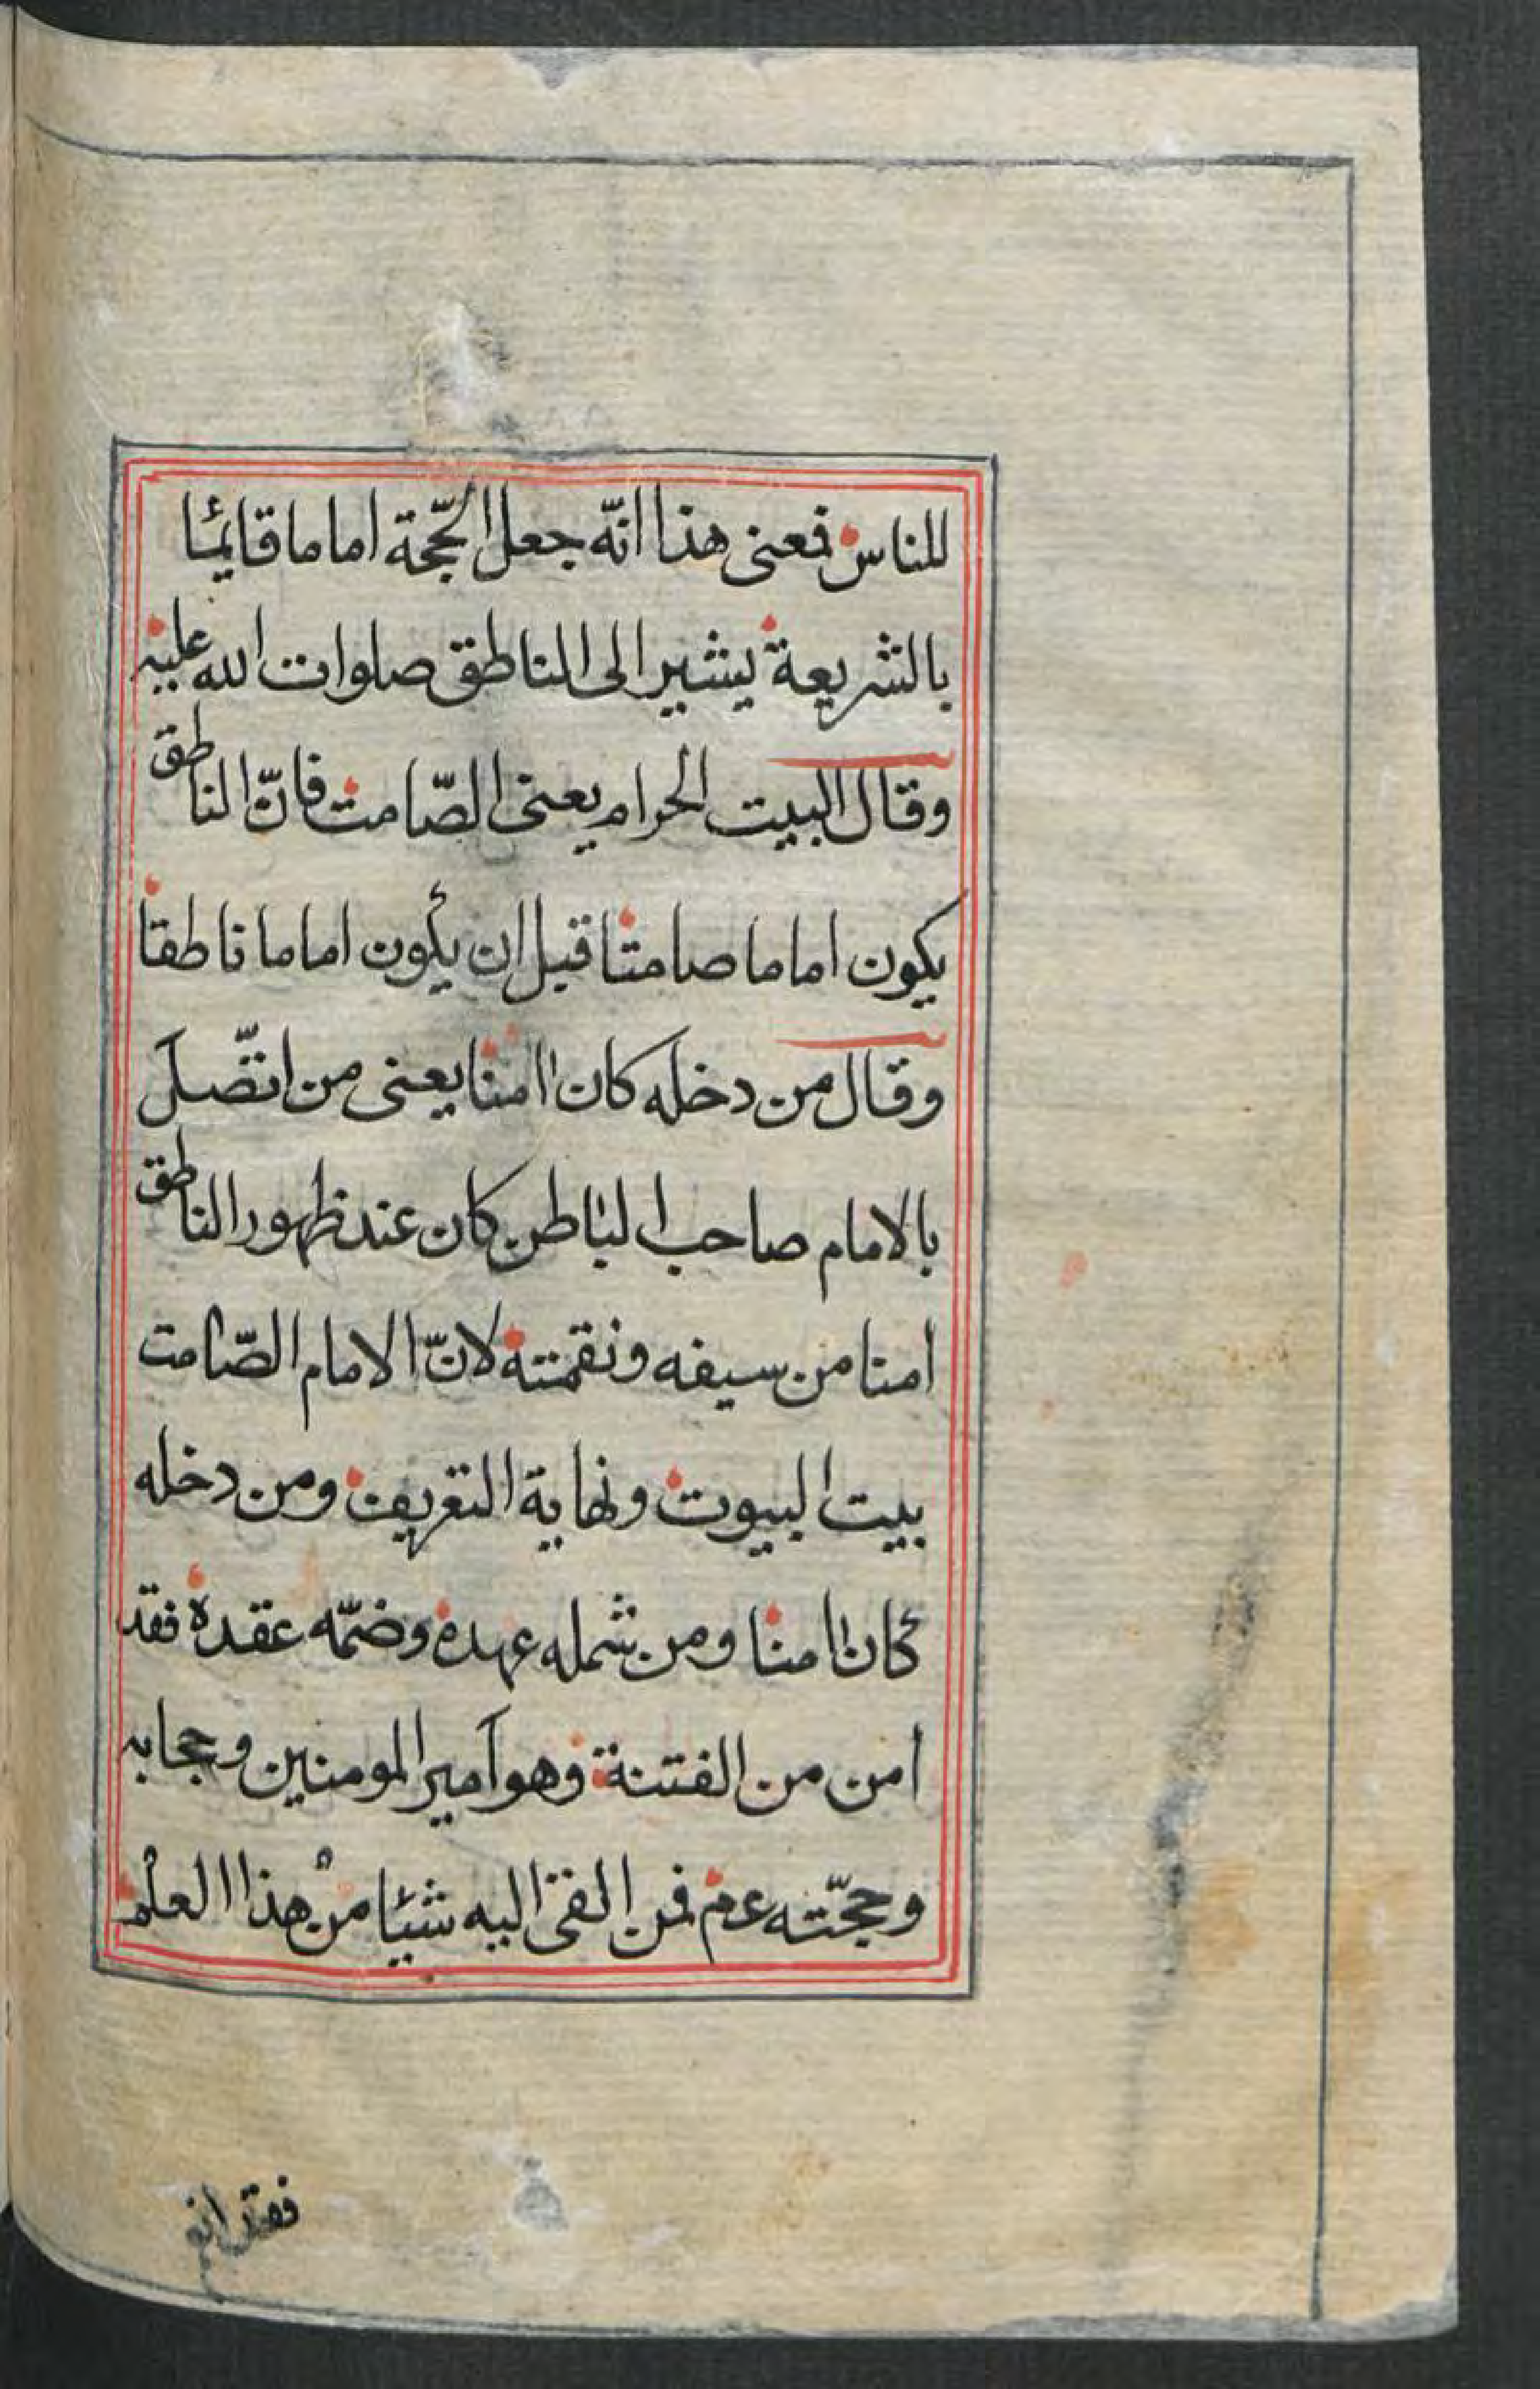 للناس فمعنى هذا انّه جعل الحجّة اماما قائما
بالشريعة يشير الى الناطق صلوات الله عليه
وقال البيت الحرام يعنى الصّامت فانّ الناطق
يكون اماما صامتا قبل ان يكون اماما ناطقا
وقال من دخله كان اامنا يعنى من اتّصل
بالامام صاحب الباطن كان عند ظهور الناطق
امنا من سيفه ونقمته لانّ الامام الصّامت
بيت البيوت ونهاية التعريف ومن دخله
كان اامنا ومن شمله عهده وضمّه عقده فقد
امن من الفتنة وهو امير المومنين وحجابه
وحجّته عم فمن القى اليه شيئا من هذا العلم
فقد